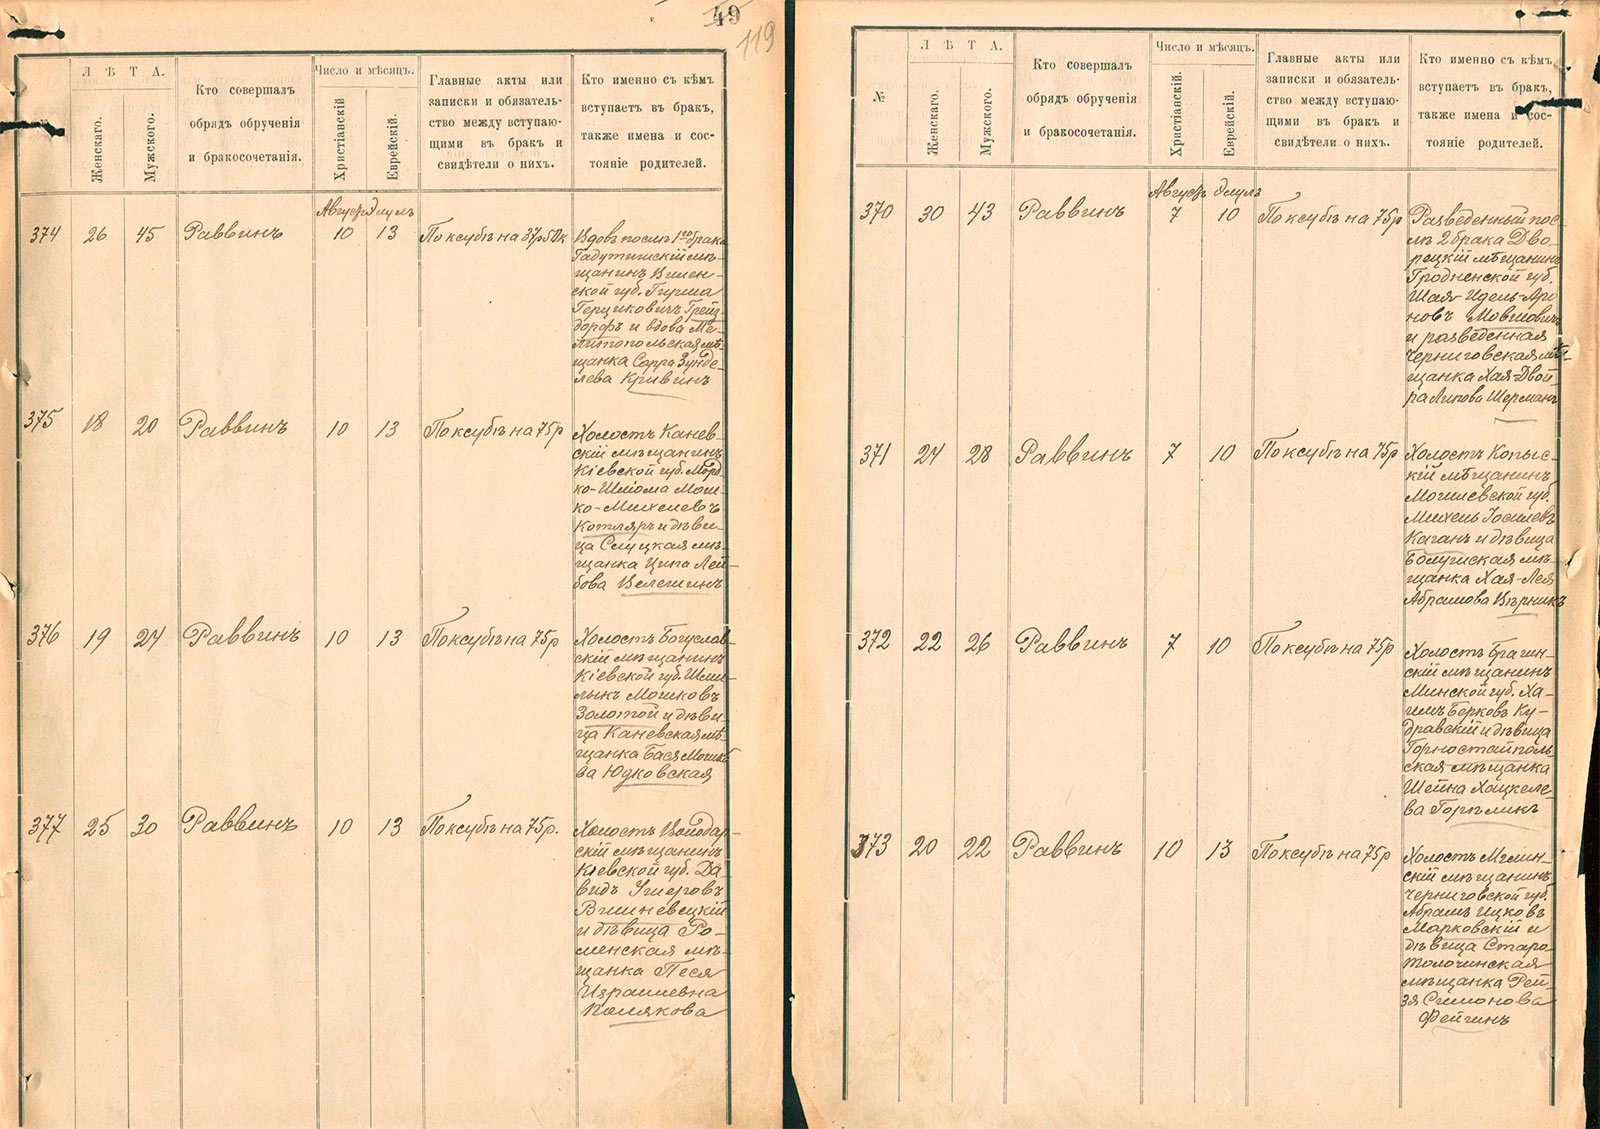 49
119
Л Ѣ Т А.
Женскаго.
Мужского.
Кто совершалъ
обрядъ обрученія
и бракосочетанія.
Число и мѣсяцъ.
Христіанскій
Еврейскій.
Главные акты или
записки и обязатель-
ство между вступаю-
щими въ бракъ и
свидѣтели о нихъ.
Кто именно съ кѣмъ
вступаетъ въ бракъ,
также имена и сос-
тояніе родителей.
Августъ Элулъ
374 26 45 Раввинъ 10 13 По ксубѣ на 37р 50к
Вдовъ послѣ 1го брака
Гадутишскій мѣ-
щанинъ Вилен-
ской губ. Гирша
Герциковичъ Грейз-
дорфъ и вдова Ме-
литопольская мѣ-
щанка Сарра Зунде-
лева Кривинъ
375 18 20 Раввинъ 10 13 По ксубѣ на 75р
Холостъ Канев-
скій мѣщанинъ
Кіевской губ. Морд-
ко-Шліома Мош-
ко-Михелевъ
Котляръ и дѣви-
ца Слуцкая мѣ-
щанка Ципа Лей-
бова Велешинъ
376 19 24 Раввинъ 10 13 По ксубѣ на 75р
Холостъ Богуслав-
скій мѣщанинъ
Кіевской губ. Шми-
лыкъ Мошковъ
Золотой и дѣви-
ца Каневская мѣ-
щанка Бася Мошко-
ва Юдковская
377 25 30 Раввинъ 10 13 По ксубѣ на 75р.
Холостъ Володар-
скій мѣщанинъ
Кіевской губ. Да-
видъ Ушеровъ
Вишневецкій
и дѣвица Ро-
менская мѣ-
щанка Песя
Израилевна
Полякова
№
Л Ѣ Т А.
Женскаго.
Мужского.
Кто совершалъ
обрядъ обрученія
и бракосочетанія.
Число и мѣсяцъ.
Христіанскій.
Еврейскій.
Главные акты или
записки и обязатель-
ство между вступаю-
щими въ бракъ и
свидѣтели о нихъ.
Кто именно съ кѣмъ
вступаетъ въ бракъ,
также имена и сос-
тояніе родителей.
Августъ Элулъ
370 30 43 Раввинъ 7 10 По ксубѣ на 75р
Разведенный пос-
лѣ 2 брака Дво-
рецкій мѣщанинъ
Гродненской губ.
Шая-Идель-Аро
новъ Мовшовичъ
и разведенная
Черниговская мѣ-
щанка Хая-Двой-
ра Липова Шерманъ
371 24 28 Раввинъ 7 10 По ксубѣ на 75р
Холостъ Копыс-
кій мѣщанинъ
Могилевской губ.
Михель Іосилевъ
Каганъ и дѣвица
мѣ-
щанка Хая-Лея
Абрамова Вѣрникъ
372 22 26 Раввинъ 7 10 По ксубѣ на 75р
Холостъ Брагин-
скій мѣщанинъ
Минской губ. Ха-
имъ Берковъ Ку-
дравскій и дѣвица
Горностайполь
ская мѣщанка
Шейна Хацкеле-
ва Горѣликъ
373 20 22 Раввинъ 10 13 По ксубѣ на 75р
Холостъ Мглин-
скій мѣщанинъ
Черниговской губ.
Абрамъ Ицковъ
Марковскій и
дѣвица Старо
толочинская
мѣщанка Рей-
зя Симонова
Фейгинъ